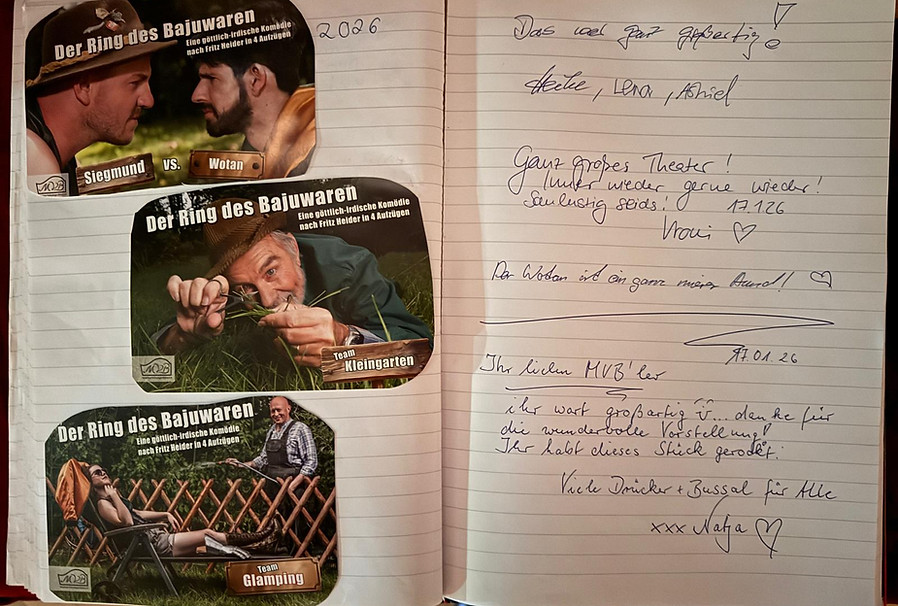 2026
Der Ring des Bajuwaren
Eine göttlich-irdische Komödie
nach Fritz Heider in 4 Aufzügen
Siegmund vs. Wotan
MVB
Der Ring des Bajuwaren
Eine göttlich-irdische Komödie
nach Fritz Heider in 4 Aufzügen
Team
Kleingarten
MVB
Der Ring des Bajuwaren
Eine göttlich-irdische Komödie
nach Fritz Heider in 4 Aufzügen
Team
Glamping
MVB
Das war ganz großartig!
Heike, Lena, Astrid
Ganz großes Theater!
Immer wieder gerne wieder!
Saulustig seids! 17.1.26
Vroni ♡
Der Wotan ist ein ganz mieser Hund! ♡
17.01.26
Ihr lieben MVB'ler
ihr wart großartig ... danke für
die wundervolle Vorstellung!
Ihr habt dieses Stück gerockt.
Viele Drücker + Bussal für Alle
xxx Natja ♡